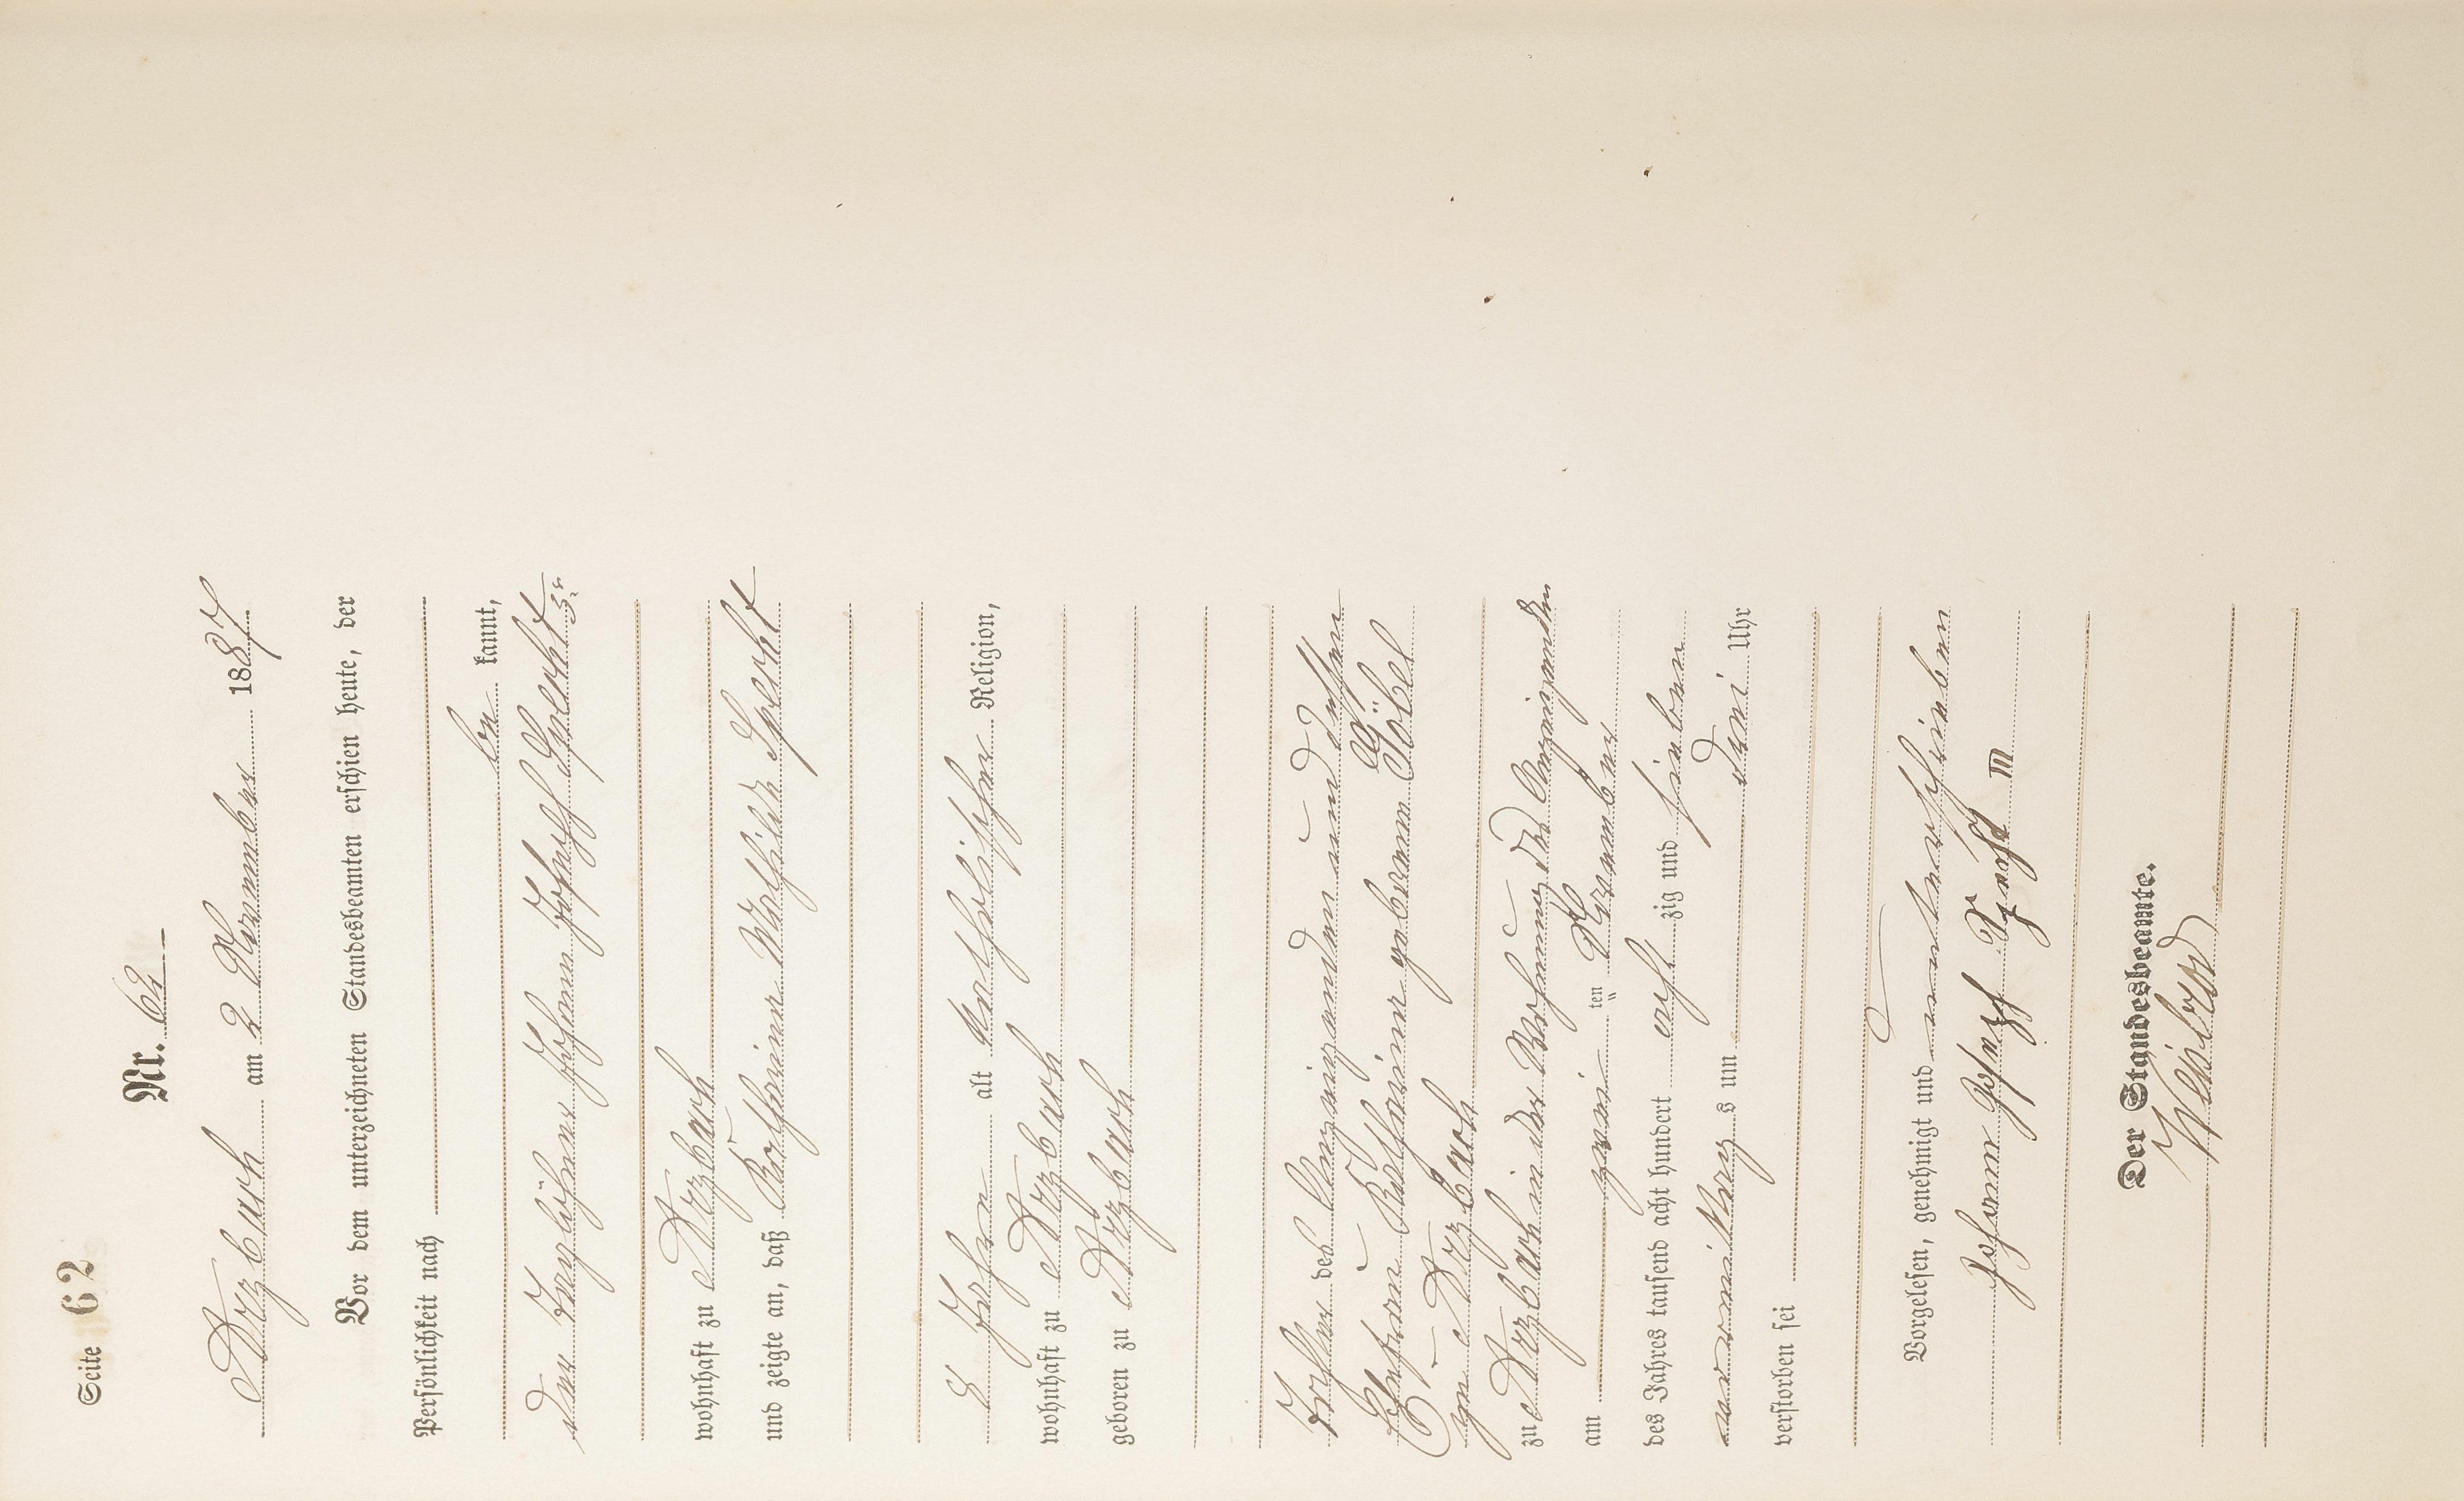 Seite 62
Nr. 62
Arzbach am 2 November 1887
Vor dem unterzeichneten Standesbeamten erschien heute, der
Persönlichkeit nach
be kannt,
der Taglöhner Johann Joseph Specht 3r
wohnhaft zu Arzbach
und zeigte an, daß Katharina Mathilde Specht
8 Jahre alt katholischer Religion,
wohnhaft zu Arzbach
geboren zu Arzbach
Tochter des Anzeigenden und dessen
Ehefrau Katharina geborene Göbel
zu Arzbach
zu Arzbach in der Wohnung des Anzeigenden
am zwei ten November
des Jahres tausend acht hundert acht zig und sieben
vormittags um drei Uhr
verstorben sei
Vorgelesen, genehmigt und unterschrieben
Johann Josef Specht III
Der Standesbeamte.